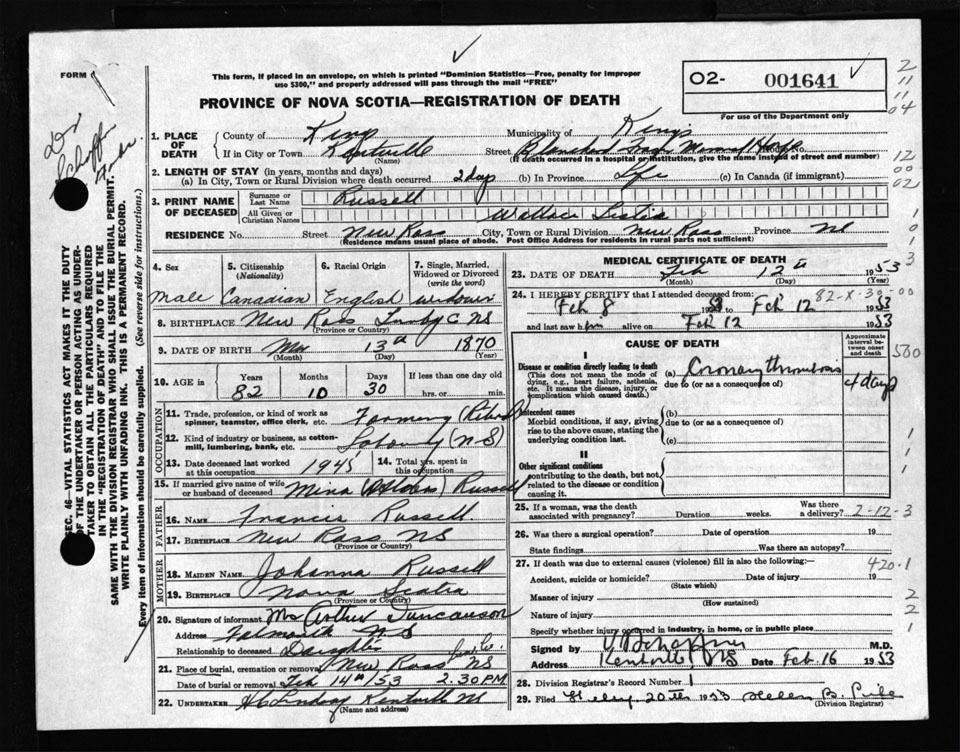 FORM
This form, if placed in an envelope, on which is printed "Dominion Statistics—Free, penalty for improper
use $300," and properly addressed will pass through the mail "FREE"
O2- 001641
For use of the Department only
PROVINCE OF NOVA SCOTIA—REGISTRATION OF DEATH
2
11
11
04
12
00
02
1
0
1
3
500
1
1
1
1
2
2
1
SEC. 46—VITAL STATISTICS ACT MAKES IT THE DUTY
OF THE UNDERTAKER OR PERSON ACTING AS UNDER-
TAKER TO OBTAIN ALL THE PARTICULARS REQUIRED
IN THE "REGISTRATION OF DEATH" AND TO FILE THE
SAME WITH THE DIVISION REGISTRAR WHO SHALL ISSUE THE BURIAL PERMIT.
WRITE PLAINLY WITH UNFADING INK. THIS IS A PERMANENT RECORD.
Every item of information should be carefully supplied. (See reverse side for instructions.)
1. PLACE OF DEATH County of Kings Municipality of Kings
If in City or Town Kentville (Name) Street Blanchard Memorial
(If death occurred in a hospital or institution, give the name instead of street and number)
2. LENGTH OF STAY (in years, months and days)
(a) In City, Town or Rural Division where death occurred 2 days (b) In Province Life (c) In Canada (if immigrant)
3. PRINT NAME OF DECEASED Surname or Last Name Russell
All Given or Christian Names Wallace
RESIDENCE No. Street New Ross City, Town or Rural Division New Ross Province NS
(Residence means usual place of abode. Post Office Address for residents in rural parts not sufficient)
4. Sex 5. Citizenship (Nationality) 6. Racial Origin 7. Single, Married, Widowed or Divorced (write the word)
Male Canadian English widower
8. BIRTHPLACE New Ross C NS
(Province or Country)
9. DATE OF BIRTH 13th 1870
(Month) (Day) (Year)
10. AGE in Years Months Days If less than one day old
82 10 30 hrs. or min.
OCCUPATION
11. Trade, profession, or kind of work as spinner, teamster, office clerk, etc. Farming (Retired)
12. Kind of industry or business, as cotton-mill, lumbering, bank, etc. (NS)
13. Date deceased last worked at this occupation 1945 14. Total yrs. spent in this occupation
15. If married give name of wife or husband of deceased Mina Russell
FATHER
16. NAME Francis Russell
17. BIRTHPLACE New Ross NS
(Province or Country)
MOTHER
18. MAIDEN NAME Johanna Russell
19. BIRTHPLACE Nova Scotia
(Province or Country)
20. Signature of informant Mrs Arthur Duncanson
Address Falmouth N.S
Relationship to deceased Daughter
21. Place of burial, cremation or removal New Ross NS
Date of burial or removal Feb 14th/53 2.30 PM
22. UNDERTAKER Lindsay Kentville NS
(Name and address)
MEDICAL CERTIFICATE OF DEATH
23. DATE OF DEATH Feb 12th 1953
(Month) (Day) (Year)
82-X-30-00
24. I HEREBY CERTIFY that I attended deceased from:
Feb 8 1953 to Feb 12 1953
and last saw him alive on Feb 12 1953
CAUSE OF DEATH
Approximate interval between onset and death
I
Disease or condition directly leading to death (a) Coronary thrombosis 4 days
(This does not mean the mode of dying, e.g., heart failure, asthenia, etc. It means the disease, injury, or complication which caused death.)
due to (or as a consequence of)
Antecedent causes (b)
Morbid conditions, if any, giving rise to the above cause, stating the underlying condition last.
due to (or as a consequence of)
(c)
II
Other significant conditions
contributing to the death, but not related to the disease or condition causing it.
25. If a woman, was the death associated with pregnancy? Duration weeks. Was there a delivery? 2-12-3
26. Was there a surgical operation? Date of operation 19
State findings Was there an autopsy?
27. If death was due to external causes (violence) fill in also the following:— 420.1
Accident, suicide or homicide? Date of injury 19
(State which)
Manner of injury
(How sustained)
Nature of injury
Specify whether injury occurred in industry, in home, or in public place
Signed by M.D.
Address Kentville NS Date Feb 16 1953
28. Division Registrar's Record Number 1
29. Filed 20th 1953 Helen B.
(Division Registrar)